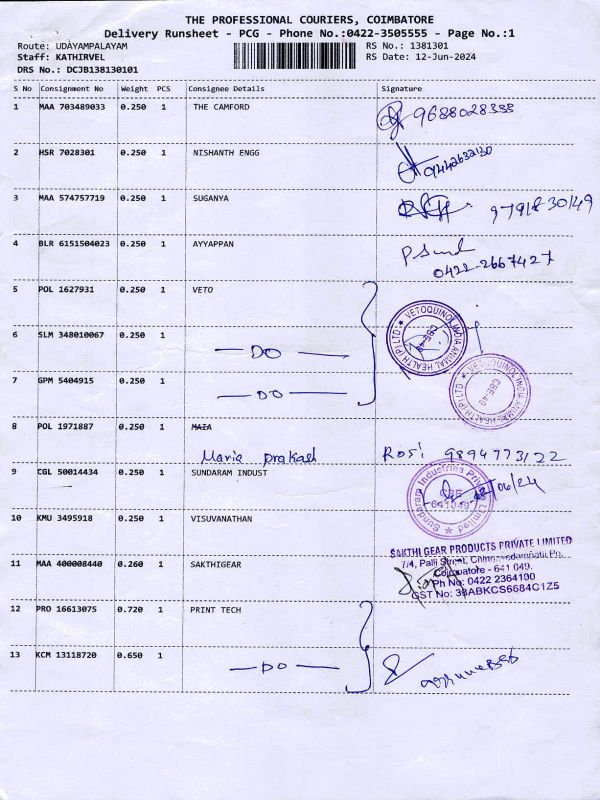 THE PROFESSIONAL COURIERS, COIMBATORE
Delivery Runsheet - PCG - Phone No.:0422-3505555 - Page No.:1
Route: UDAYAMPALAYAM RS No.: 1381301
Staff: KATHIRVEL RS Date: 12-Jun-2024
DRS No.: DCJB138130101
S No Consignment No Weight PCS Consignee Details Signature
1 MAA 703489033 0.250 1 THE CAMFORD
2 HSR 7028301 0.250 1 NISHANTH ENGG
3 MAA 574757719 0.250 1 SUGANYA
4 BLR 6151504023 0.250 1 AYYAPPAN
0422-2667427
5 POL 1627931 0.250 1 VETO
VETOQUINOL INDIA ANIMAL HEALTH (P) LTD
CBE-49
6 SLM 348010067 0.250 1 — DO —
7 GPM 5404915 0.250 1 — DO —
VETOQUINOL INDIA ANIMAL HEALTH (P) LTD
CBE-49
8 POL 1971887 0.250 1 MAIA
Maria prakash Rosi 9894773122
9 CGL 50014434 0.250 1 SUNDARAM INDUST
Sundaram Industries Private Limited
CBE
641049
10 KMU 3495918 0.250 1 VISUVANATHAN
SAKTHI GEAR PRODUCTS PRIVATE LIMITED
11 MAA 400008440 0.260 1 SAKTHIGEAR
7/4, Palli Street,
Coimbatore - 641 049.
Ph No: 0422 2364100
GST No: 33ABKCS6684C1Z5
12 PRO 16613075 0.720 1 PRINT TECH
13 KCM 13118720 0.650 1 — DO —